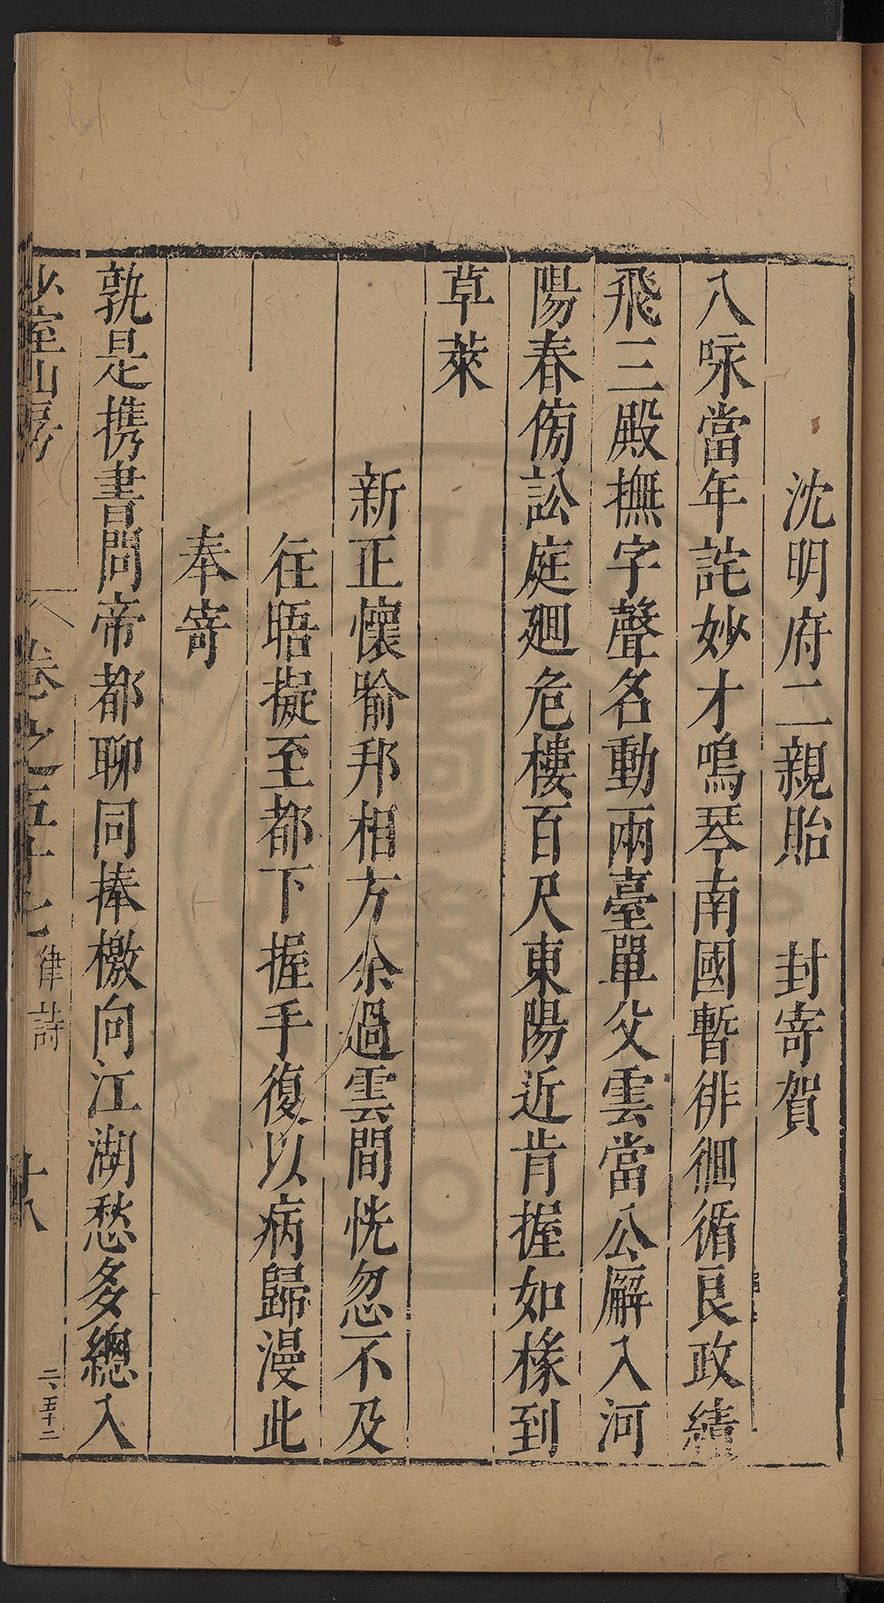 沈明府二親貽　封寄賀
八咏當年詫妙才鳴琴南國暫徘徊循良政績
飛三殿撫字聲名動兩臺單父雲當公廨入河
陽春傍訟庭廻危樓百尺東陽近肯握如椽到
草萊
新正懷喻邦相方余過雲間恍忽不及
往晤擬至都下握手復以病歸漫此
奉寄
孰是携書問帝都聊同捧檄向江湖愁多總入
少室山房
卷之五十七
律詩
十八
二、五十二